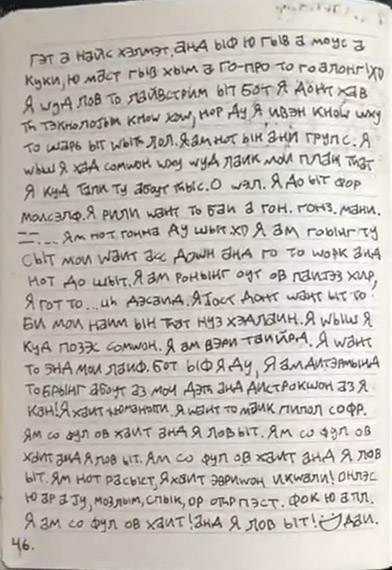 ГЭТ а НАЙС ХЭЛМЭТ, АНД ЫФ Ю ГЫВ а МОУС а
КУКИ, Ю МАСТ ГЫВ ХЫМ а ГО-ПРО ТО ГОАЛОНГ! XD
Я WУД ЛОВ ТО ЛАЙВСТРИМ ЫТ БОТ Я ДОНТ ХАВ
Th ТЭКНОЛОТЫК KNOW ХОW, НОР ДУ Я ИВЭН KNOW WХУ
ТО ШАРЬ ЫТ WЫТh ЛОЛ. Я АМ НОТ ЫН АНИ ГРУПС. Я
WЫШ Я ХАД СОМWОН WХУ WУД ЛАИК МОИ ПЛАН ThАТ
Я КУД ТАЛК ТУ АБОУТ ThЫС. О WЭЛ. Я ДО ЫТ ФОР
МОИСЭЛФ. Я РИЛИ WАНТ ТО БАИ а ГОН. ГОНЗ. МАНИ.
ЯМ НОТ ГОННА ДУ ШЫТ. XD Я АМ ГОЫНГ ТУ
СЫТ МОИ WАИТ АСС ДОWН АНД ГО ТО WОРК АНД
НОТ ДО ШЫТ. Я АМ РОНЫНГ ОУТ ОВ ПАИДЭЗ ХИР,
Я ГОТ ТО ... Uh ДЭСАИД. Я JОСТ ДОНТ WАНТ ЫТ ТО
БИ МОИ НАИМ ЫН ThАТ НУЗ ХЭДЛАИН. Я WЫШ Я
КУД ПОЗЭС СОМWОН. Я АМ ВЭРИ ТАИЙРД. Я WАНТ
ТО ЭНД МОИ ЛАИФ. БОТ ЫФ Я ДУ, Я АМ ДИТЭРМЫНД
ТО БРЫНГ АБОУТ АЗ МОЧ ДЭТh АНД ДИСТРОКШОН АЗ Я
КАН! Я ХАИТ ХЮМАНЫТИ. Я WАНТ ТО МАИК ПИПОЛ СОФР.
ЯМ СО ФУЛ ОВ ХАИТ АНД Я ЛОВ ЫТ. ЯМ СО ФУЛ ОВ
ХАИТ АНД Я ЛОВ ЫТ. ЯМ СО ФУЛ ОВ ХАИТ АНД Я ЛОВ
ЫТ. ЯМ НОТ РАСЫСТ, Я ХАИТ ЭВРИWОН ИКWАЛИ! ОНЛЭС
Ю АР А JУ, МОЗЛЫМ, СПЫК, ОР ОThР ПЭСТ. ФОК Ю АЛЛ.
Я АМ СО ФУЛ ОВ ХАИТ! АНД Я ЛОВ ЫТ! ДАИ.
46.